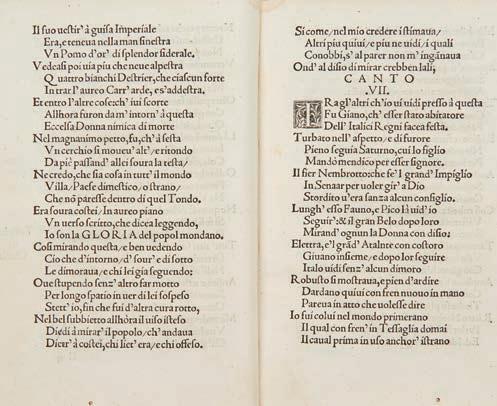 Il suo uestir' à guisa Imperiale
Era, e teneua nella man sinestra
Vn Pomo d'or' di splendor siderale.
Vedeasi poi uia piu che neue alpestra
Quattro bianchi Destrier, che ciascun forte
In trar l'aureo Carr' arde, e s'addestra.
Et entro l'altre cose ch' iui scorte
Allhora furon da m' intorn' à questa
Eccelsa Donna nimica di morte
Nel magnanimo petto, fu, ch' à festa
Vn cerchio si moueu' alt', e ritondo
Da piè passand' allei soura la testa/
Ne credo, che sia cosa in tutt' il mondo
Villa/ Paese dimestico/ o strano/
Che nō paresse dentro di quel Tondo.
Era soura costei/ In aureo piano
Vn uerso scritto, che dicea leggendo,
Io son la GLORIA del popol mondano.
Cosi mirando questa/ e ben uedendo
Cio che d'intorno/ d' sour' e di sotto
Le dimoraua/ e chi lei gia seguendo:
Oue stupendo senz' altro far motto
Per longo spatio in uer di lei sospeso
Stett' io, fin che fui d'altra cura rotto,
Nel bel subbietto allhòra il uiso isteso
Diedi à mirar' il popolo/ ch' andaua
Dietr' à costei, chi liet' era/ e chi offeso.
c
Si come/ nel mio credere istimaua/
Altri piu quiui/ e piu ne uidi/ i quali
Conobbi, s' al parer non m' ingānaua
Ond' al disio di mirar crebben lali,
CANTO
.VII.
TRa gl'altri ch'io ui uidi presso à questa
Fu Giano, ch' esser stato abitatore
Dell' Italici Regni facea festa.
Turbato nell' aspetto/ e di furore
Pieno seguia Saturno, cui lo figlio
Mandò mendico per esser signore.
Il fier Nembrotto: che fe' l grand' Impiglio
In Senaar per uoler gir' a Dio
Stordito u'era sanza alcun consiglio.
Lungh' esso Fauno, e Pico li uid' io
Seguir': & il gran Belo dopo loro
Mirand' ognun la Donna con disio:
Elettra, e'l grād' Atalnte con costoro
Giuano insieme/ e dopo lor seguire
Italo uidi senz' alcun dimoro
Robusto si mostraua, e pien d'ardire
Dardano quiui con fren nuouo in mano
Pareua in atto che uolesse dire
Io fui colui nel mondo primerano
Il qual con fren' in Tessaglia domai
Il caual prima in uso anchor' istrano